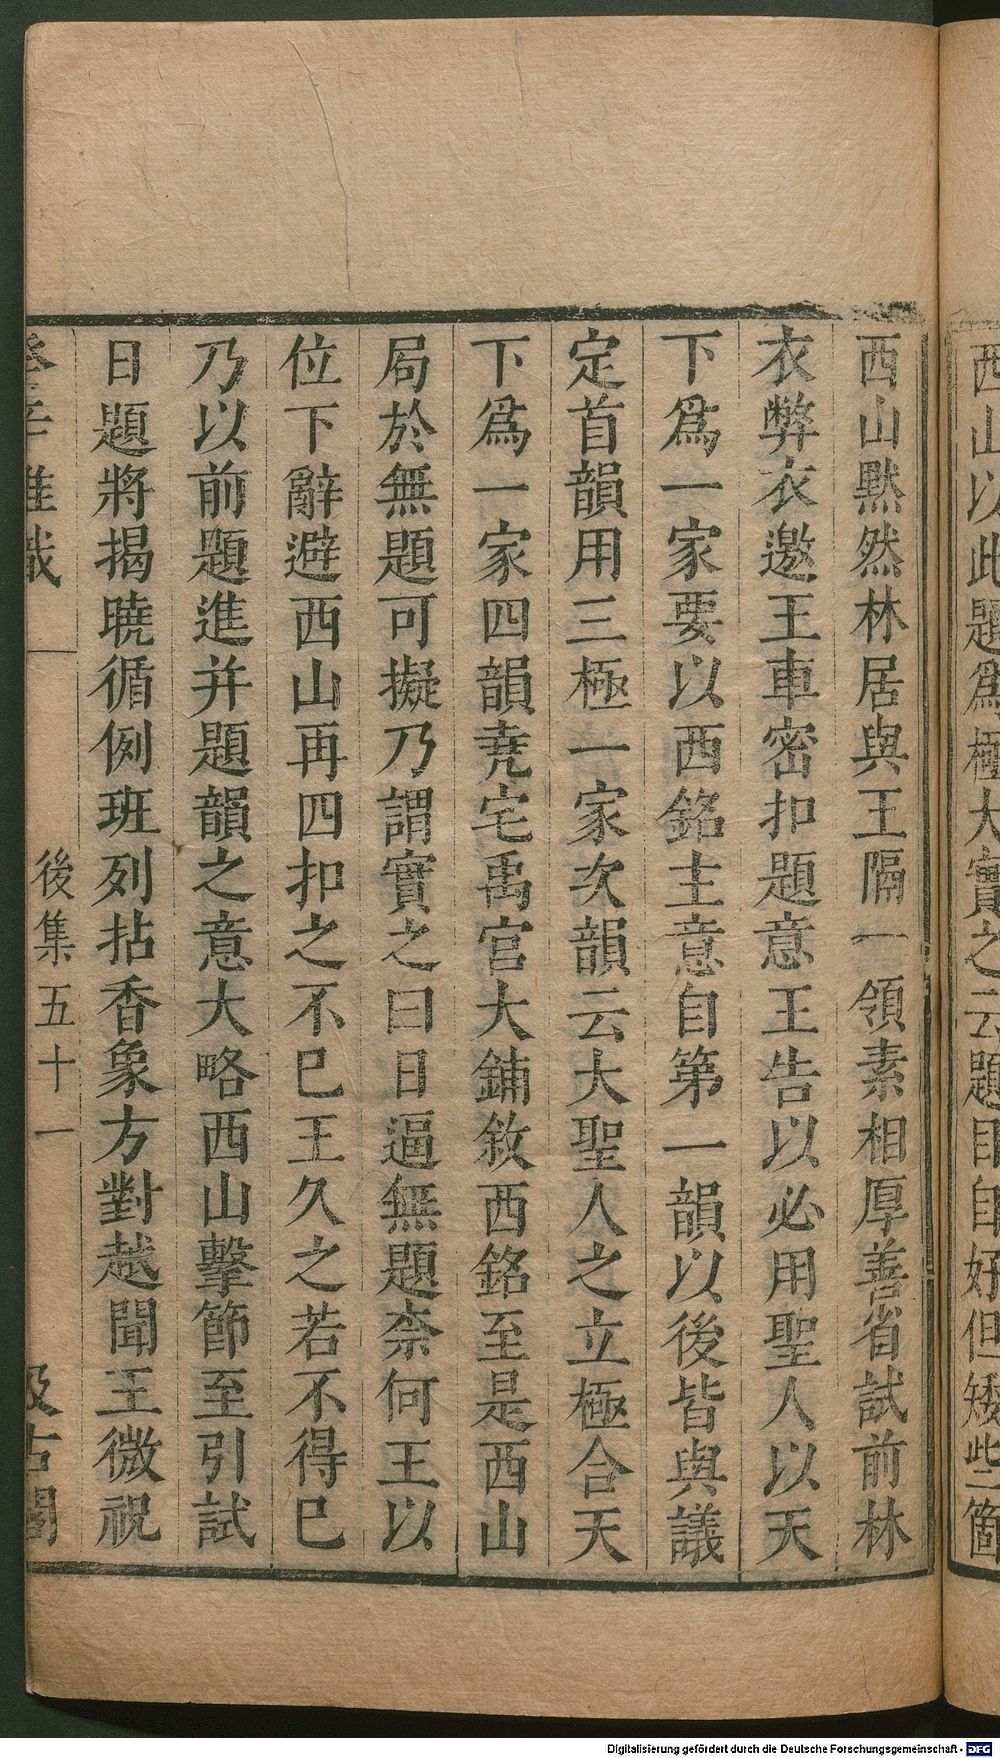 西山以此題爲極大實之云題目自好但矮些箇
西山黙然林居與王隔一領素相厚善省試前林
衣弊衣邀王車密扣題意王告以必用聖人以天
下爲一家要以西銘主意自第一韻以後皆與議
定首韻用三極一家次韻云大聖人之立極合天
下爲一家四韻堯宅禹宫大鋪敘西銘至是西山
局於無題可擬乃謂實之曰日逼無題柰何王以
位下辭避西山再四扣之不已王久之若不得已
乃以前題進并題韻之意大略西山擊節至引試
日題將揭曉循例班列拈香象方對越聞王微祝
後集五十一
汲古閣
Digitalisierung gefördert durch die Deutsche Forschungsgemeinschaft - DFG